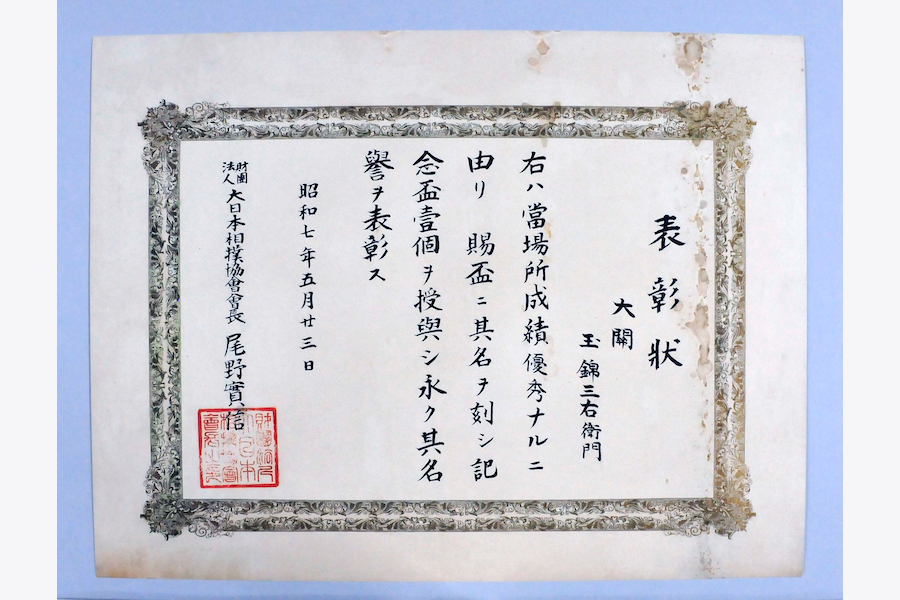 表彰狀
大關
玉錦三右衛門
右ハ當場所成績優秀ナルニ
由リ 賜盃ニ其名ヲ刻シ記
念盃壹個ヲ授與シ永ク其名
譽ヲ表彰ス
昭和七年五月廿三日
財團法人大日本相撲協會會長 尾野實信